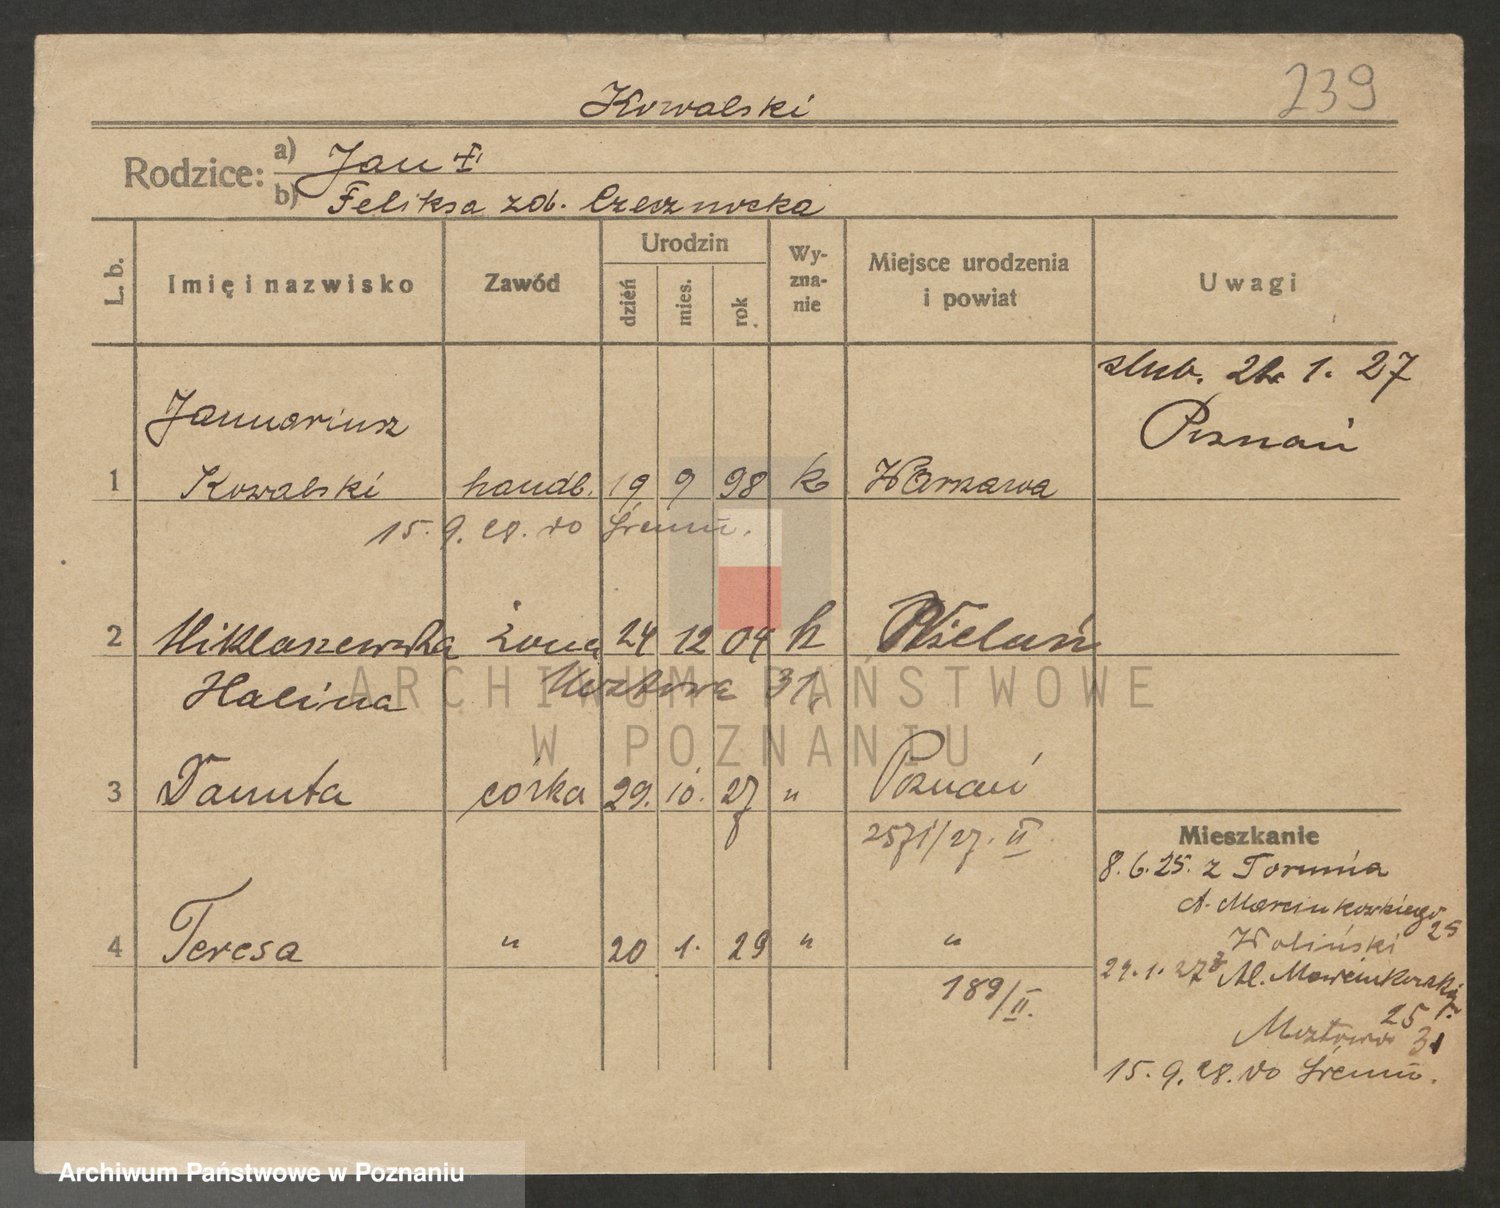 239
Kowalski
Rodzice: a) Jan
b) Feliksa zd.
L. b. Imię i nazwisko Zawód Urodzin dzień mies. rok Wyznanie Miejsce urodzenia i powiat Uwagi
ślub. 1. 27
Poznań
Januariusz
1 Kowalski handl. 19 9 98 k Warszawa
15. 9. 28. do Śremu.
2 Miklaszewska żona 24 12 04 k Wieluń
Halina Mostowa 31
3 Danuta córka 29. 10. 27 " Poznań
2571/27. II
4 Teresa " 20 1. 29 " "
189/II.
Mieszkanie
8. 6. 25. z Torunia
A. Marcinkowskiego 25
Woliński
29. 1. 27 Al. Marcinkowskiego
25
Mostowa 31
15. 9. 28. do Śremu.
ARCHIWUM PAŃSTWOWE
W POZNANIU
Archiwum Państwowe w Poznaniu